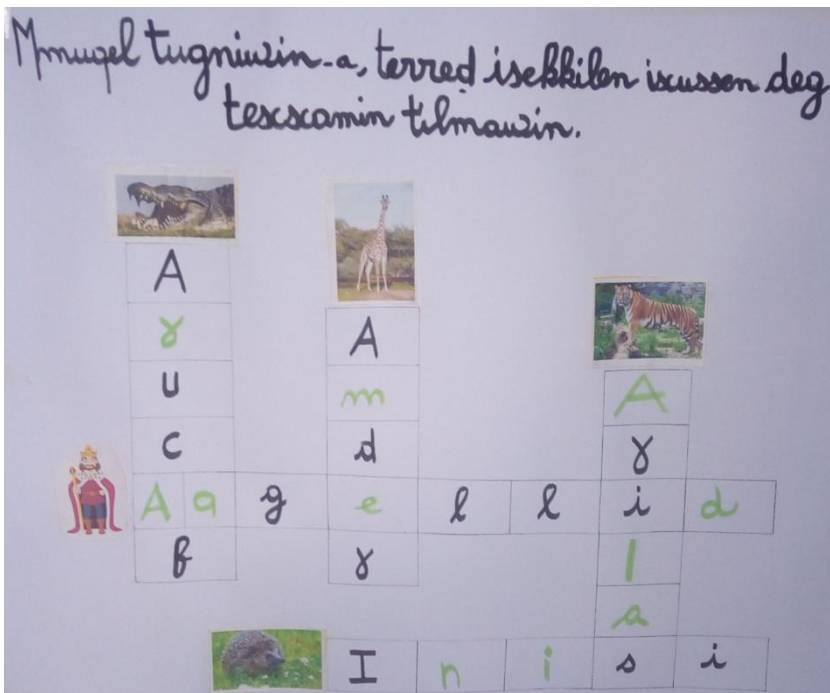 Mmuqel tugniwin-a, terreḍ isekkilen ixussen deg
texxamin tilmawin.
A
ɣ
A
u
m
A
c
d
ɣ
A a g e l l i d
f
ɣ
l
a
I n i s i